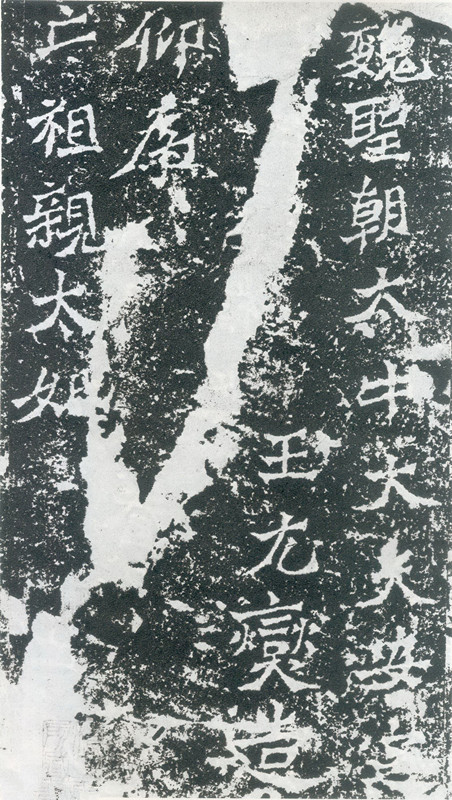 魏聖朝太中大夫安定
王元燮造
仰為
亡祖親太妃